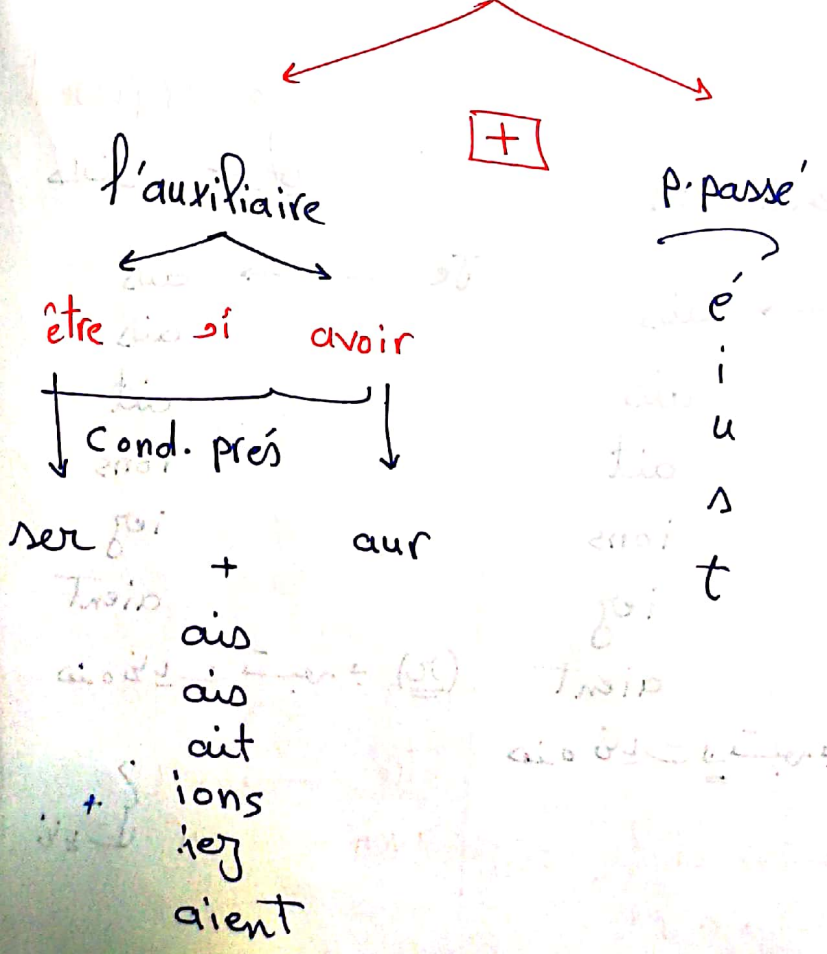 +
l'auxiliaire p. passé
être أو avoir
Cond. prés
ser aur
+
ais
ais
ait
ions
iez
aient
é
i
u
s
t